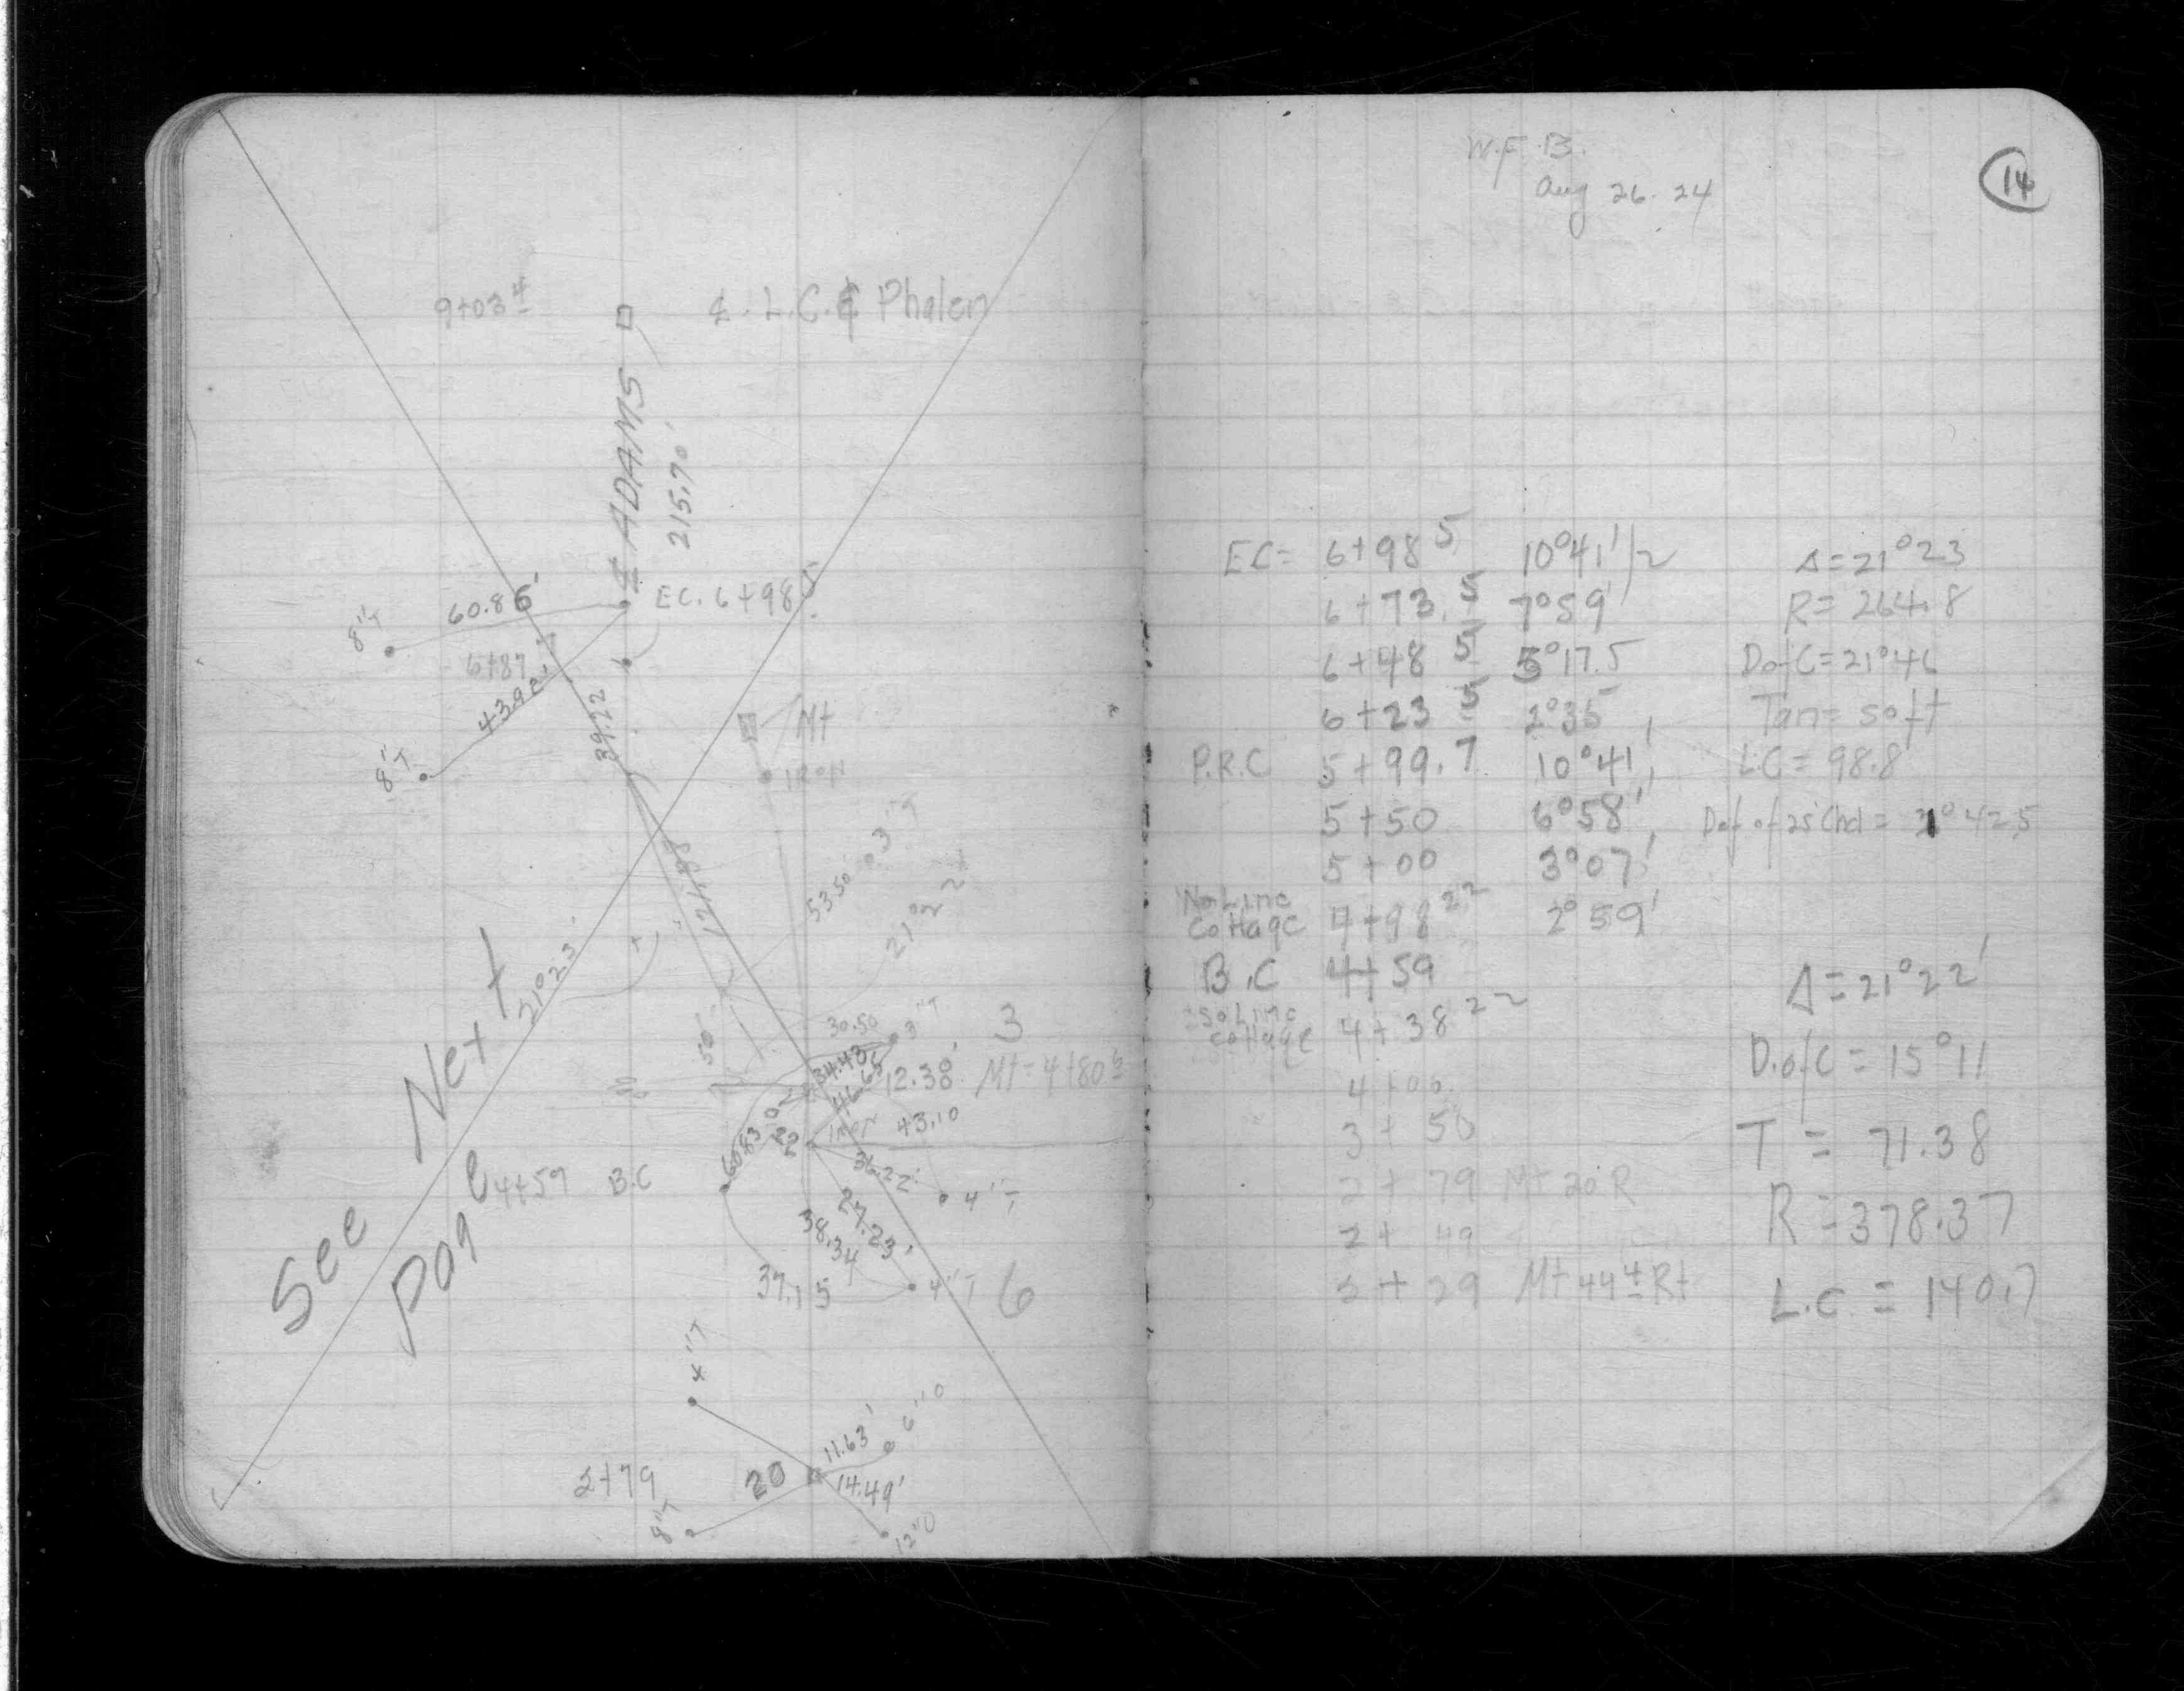 9+03 4
℄. L.C. ₵ Phalen
℄ ADAMS
215.70'
EC. 6+98.5
60.86'
8"T
6+87
43.90'
8"T
39.22
Mt
IRON
121.88
53.50
3"T
21°22'
21°23'
50'
30.50
3"T
3
34.43
46.65
12.38'
Mt=4+80
60.83
20
22
IRON
43.10
36.22'
4+59 B.C
4"T
27.23'
38.34
37.15
4"T
6
See
Next
Page
4"T
11.63'
6"O
2+79
20
14.49'
8"T
12"O
W.F.B.
Aug 26. 24
14
EC= 6+98 5 10°41'/2 Δ=21°23
6+73. 5 7°59' R= 264.8
6+48 5 5°17.5 D of C=21°46
6+23 5 2°35' Tan= 50ft
P.R.C 5+99.7 10°41' L.C= 98.8'
5+50 6°58' Def of 25' Chd = 2°42.5
5+00 3°07'
No Line
Cottage 4+98 22 2°59'
B.C 4+59 Δ=21°22'
So Line
Cottage 4+38 22
D.of C = 15°11
4+00
3+50 T = 71.38
2+79 Mt 20 R
2+49 R=378.37
2+29 Mt 44 4 Rt L.C. = 140.7